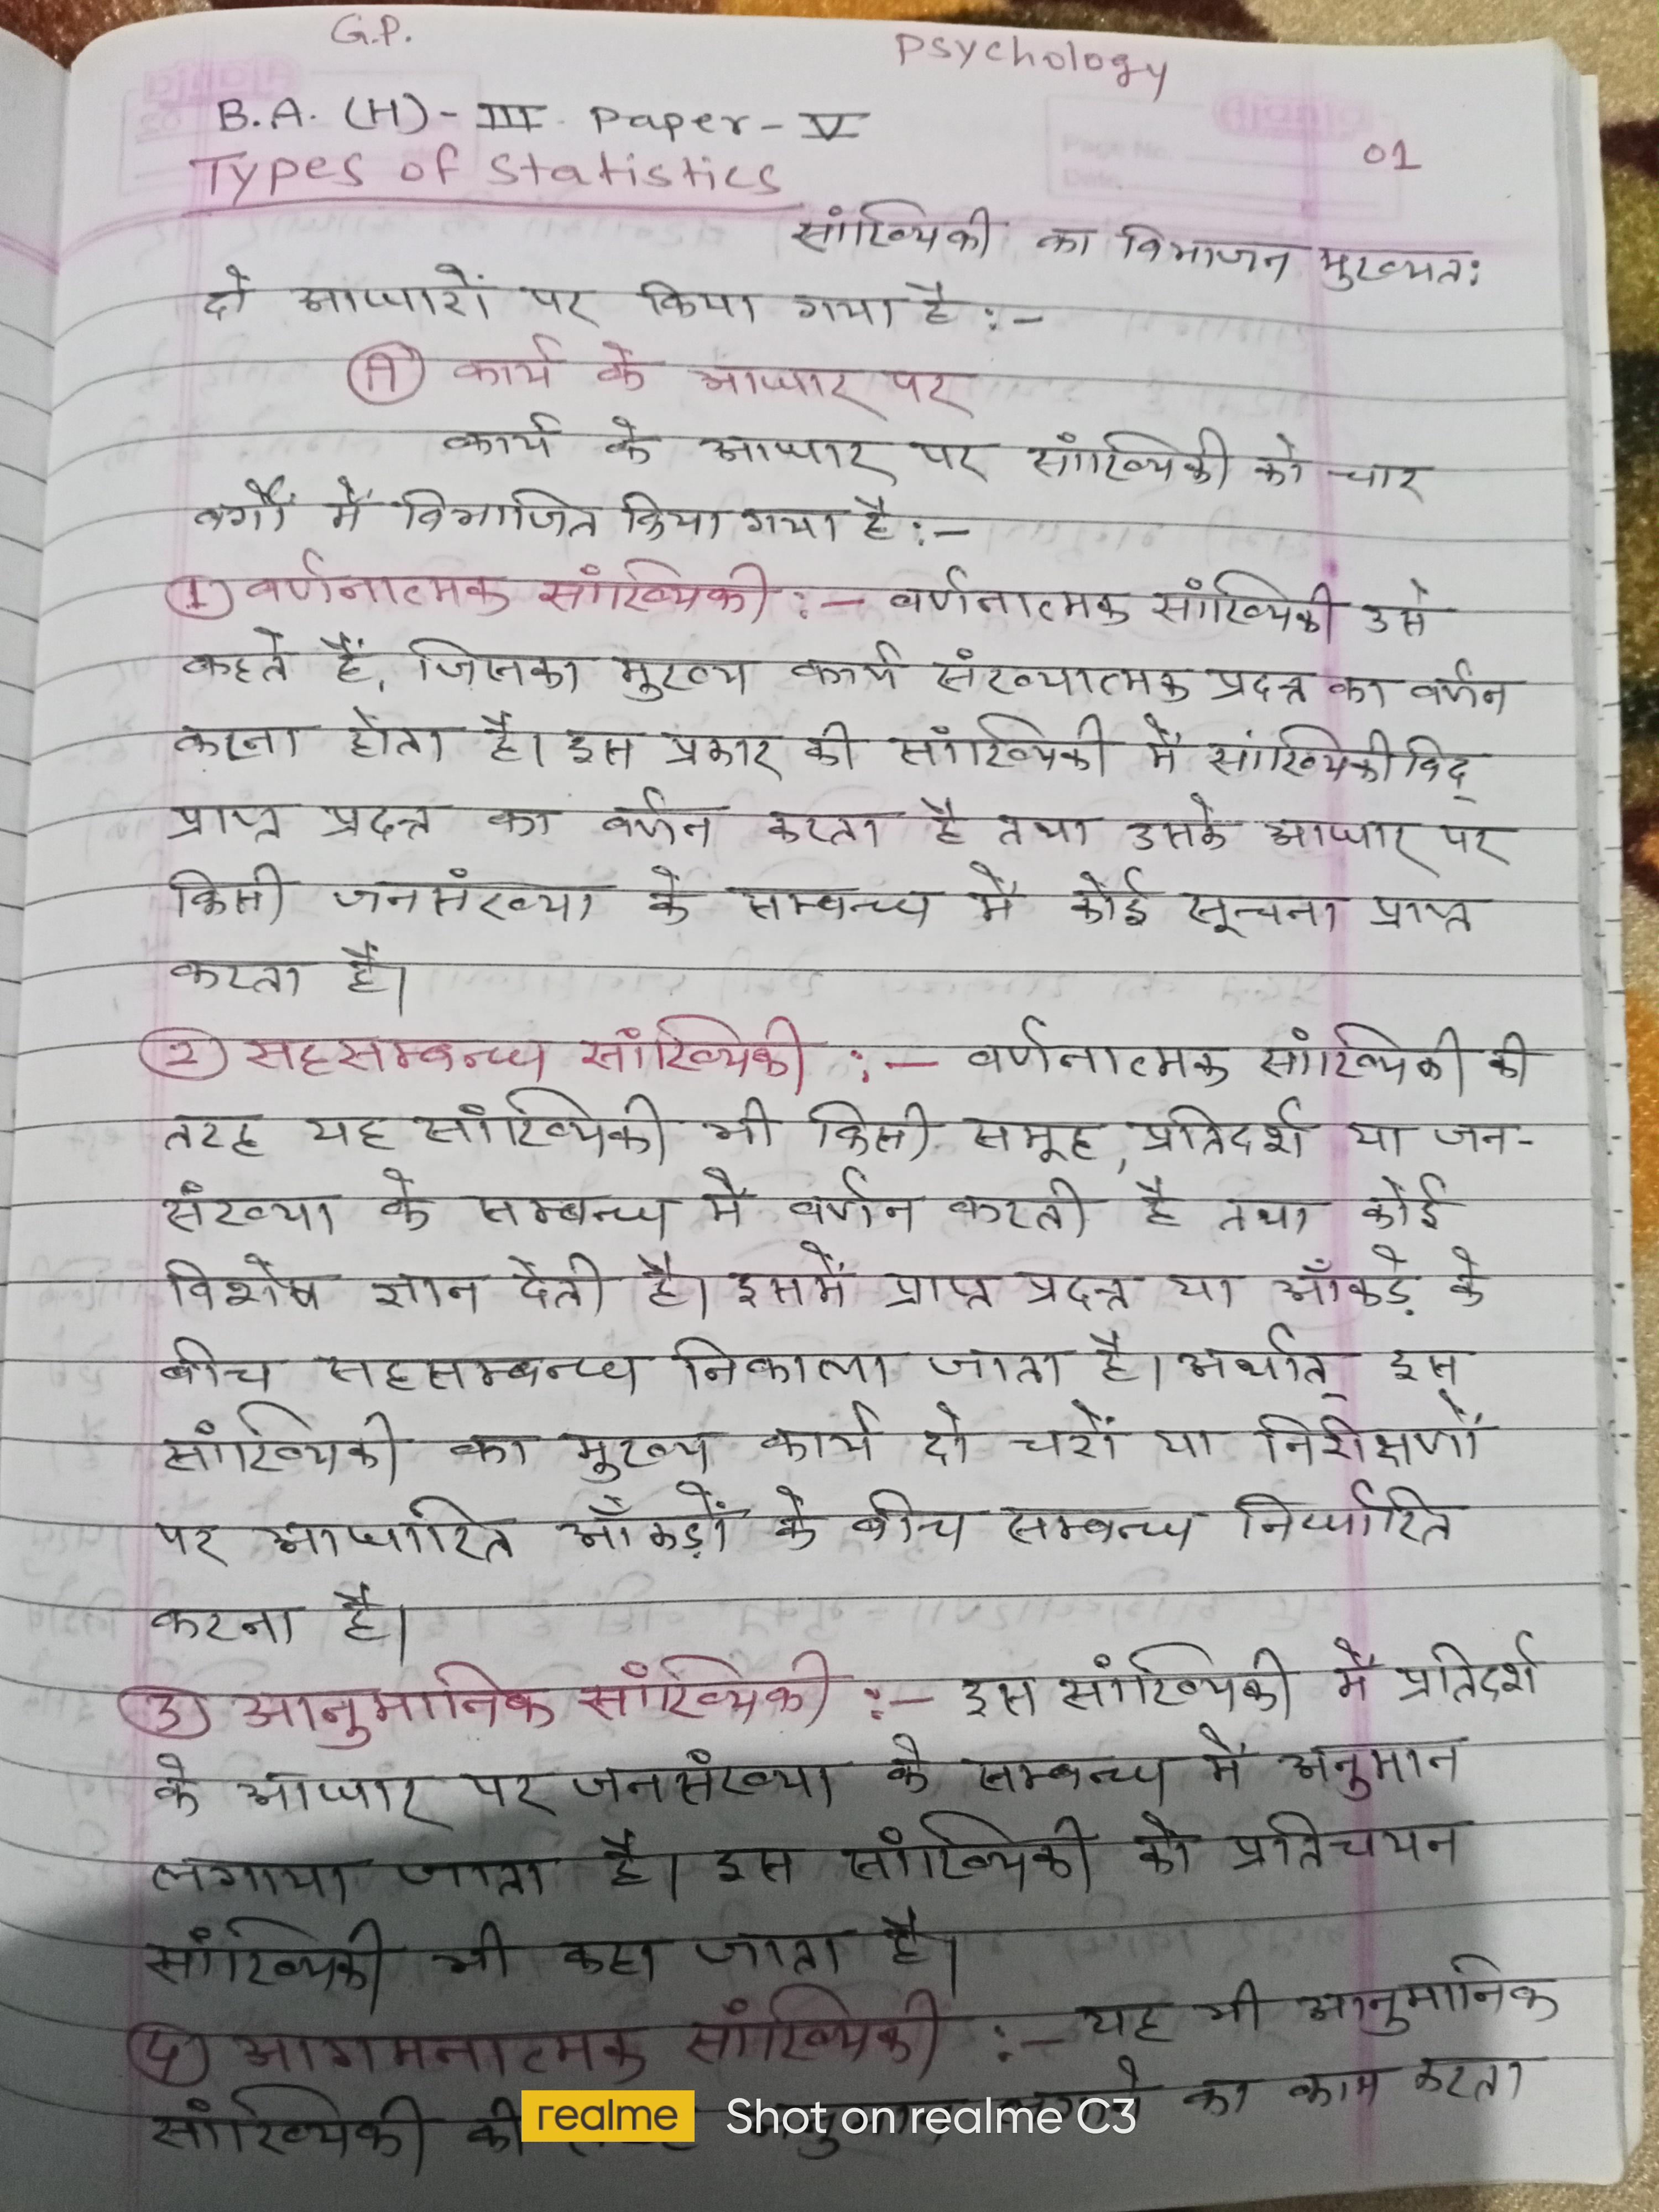 G.P.
Psychology
B.A. (H) - III Paper - V
01
Types of Statistics
सांख्यिकी का विभाजन मुख्यतः
दो आधारों पर किया गया है :-
(A) कार्य के आधार पर
कार्य के आधार पर सांख्यिकी को चार
वर्गों में विभाजित किया गया है :-
(1) वर्णनात्मक सांख्यिकी :- वर्णनात्मक सांख्यिकी उसे
कहते हैं, जिसका मुख्य कार्य संख्यात्मक प्रदत्त का वर्णन
करना होता है। इस प्रकार की सांख्यिकी में सांख्यिकीविद्
प्राप्त प्रदत्त का वर्णन करता है तथा उसके आधार पर
किसी जनसंख्या के सम्बन्ध में कोई सूचना प्राप्त
करता है।
(2) सहसम्बन्ध सांख्यिकी :- वर्णनात्मक सांख्यिकी की
तरह यह सांख्यिकी भी किसी समूह, प्रतिदर्श या जन-
संख्या के सम्बन्ध में वर्णन करती है तथा कोई
विशेष ज्ञान देती है। इसमें प्राप्त प्रदत्त या आँकड़े के
बीच सहसम्बन्ध निकाला जाता है। अर्थात् इस
सांख्यिकी का मुख्य कार्य दो चरों या निरीक्षणों
पर आधारित आँकड़ों के बीच सम्बन्ध निर्धारित
करना है।
(3) आनुमानिक सांख्यिकी :- इस सांख्यिकी में प्रतिदर्श
के आधार पर जनसंख्या के सम्बन्ध में अनुमान
लगाया जाता है। इस सांख्यिकी को प्रतिचयन
सांख्यिकी भी कहा जाता है।
(4) आगमनात्मक सांख्यिकी :- यह भी आनुमानिक
सांख्यिकी की का काम करता
realme Shot on realme C3